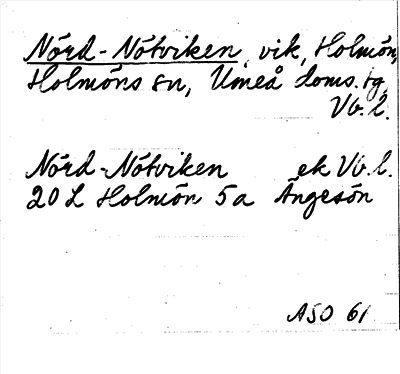 Nörd-Nötviken, vik, Holmön,
Holmöns sn, Umeå doms. tg,
Vb. l.
Nörd-Nötviken ek Vb. l.
20 L Holmön 5a Ängesön
ASO 61